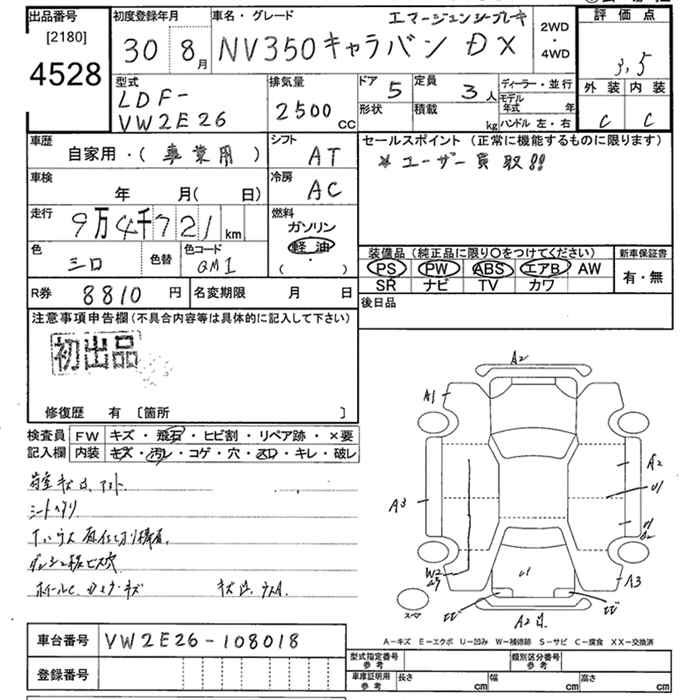 出品番号
[2180]
4528
初度登録年月
30 8月
車名・グレード
エマージェンシーブレーキ
NV350キャラバン DX
2WD
・
4WD
評価点
3.5
外装 内装
C C
型式
LDF-
VW2E26
排気量
2500 cc
ドア 5
定員 3人
形状
積載 kg
ディーラー・並行
モデル年式 年
ハンドル 左・右
車歴
自家用・(事業用)
シフト AT
セールスポイント (正常に機能するものに限ります)
*ユーザー買取!!
車検 年 月( 日)
冷房 AC
走行 9万4千721km
燃料
ガソリン
軽油
( ・ )
色 シロ
色替
色コード QM1
装備品 (純正品に限り○をつけてください)
PS PW ABS エアB AW
SR ナビ TV カワ
新車保証書
有・無
R券 8810円
名変期限 月 日
後日品
注意事項申告欄(不具合内容等は具体的に記入して下さい)
初出品
修復歴 有 [箇所 ]
検査員
記入欄
FW キズ・飛石・ヒビ割・リペア跡・×要
内装 キズ・汚レ・コゲ・穴・スレ・キレ・破レ
シートヘタリ
A2
A1
A2
U1
A3
W2
U1
A3
スペア
A2
A−キズ E−エクボ U−凹み W−補修跡 S−サビ C−腐食 XX−交換済
車台番号 VW2E26-108018
登録番号
型式指定番号
参考
類別区分番号
参考
車庫証明用
参考
長さ cm
幅 cm
高さ cm